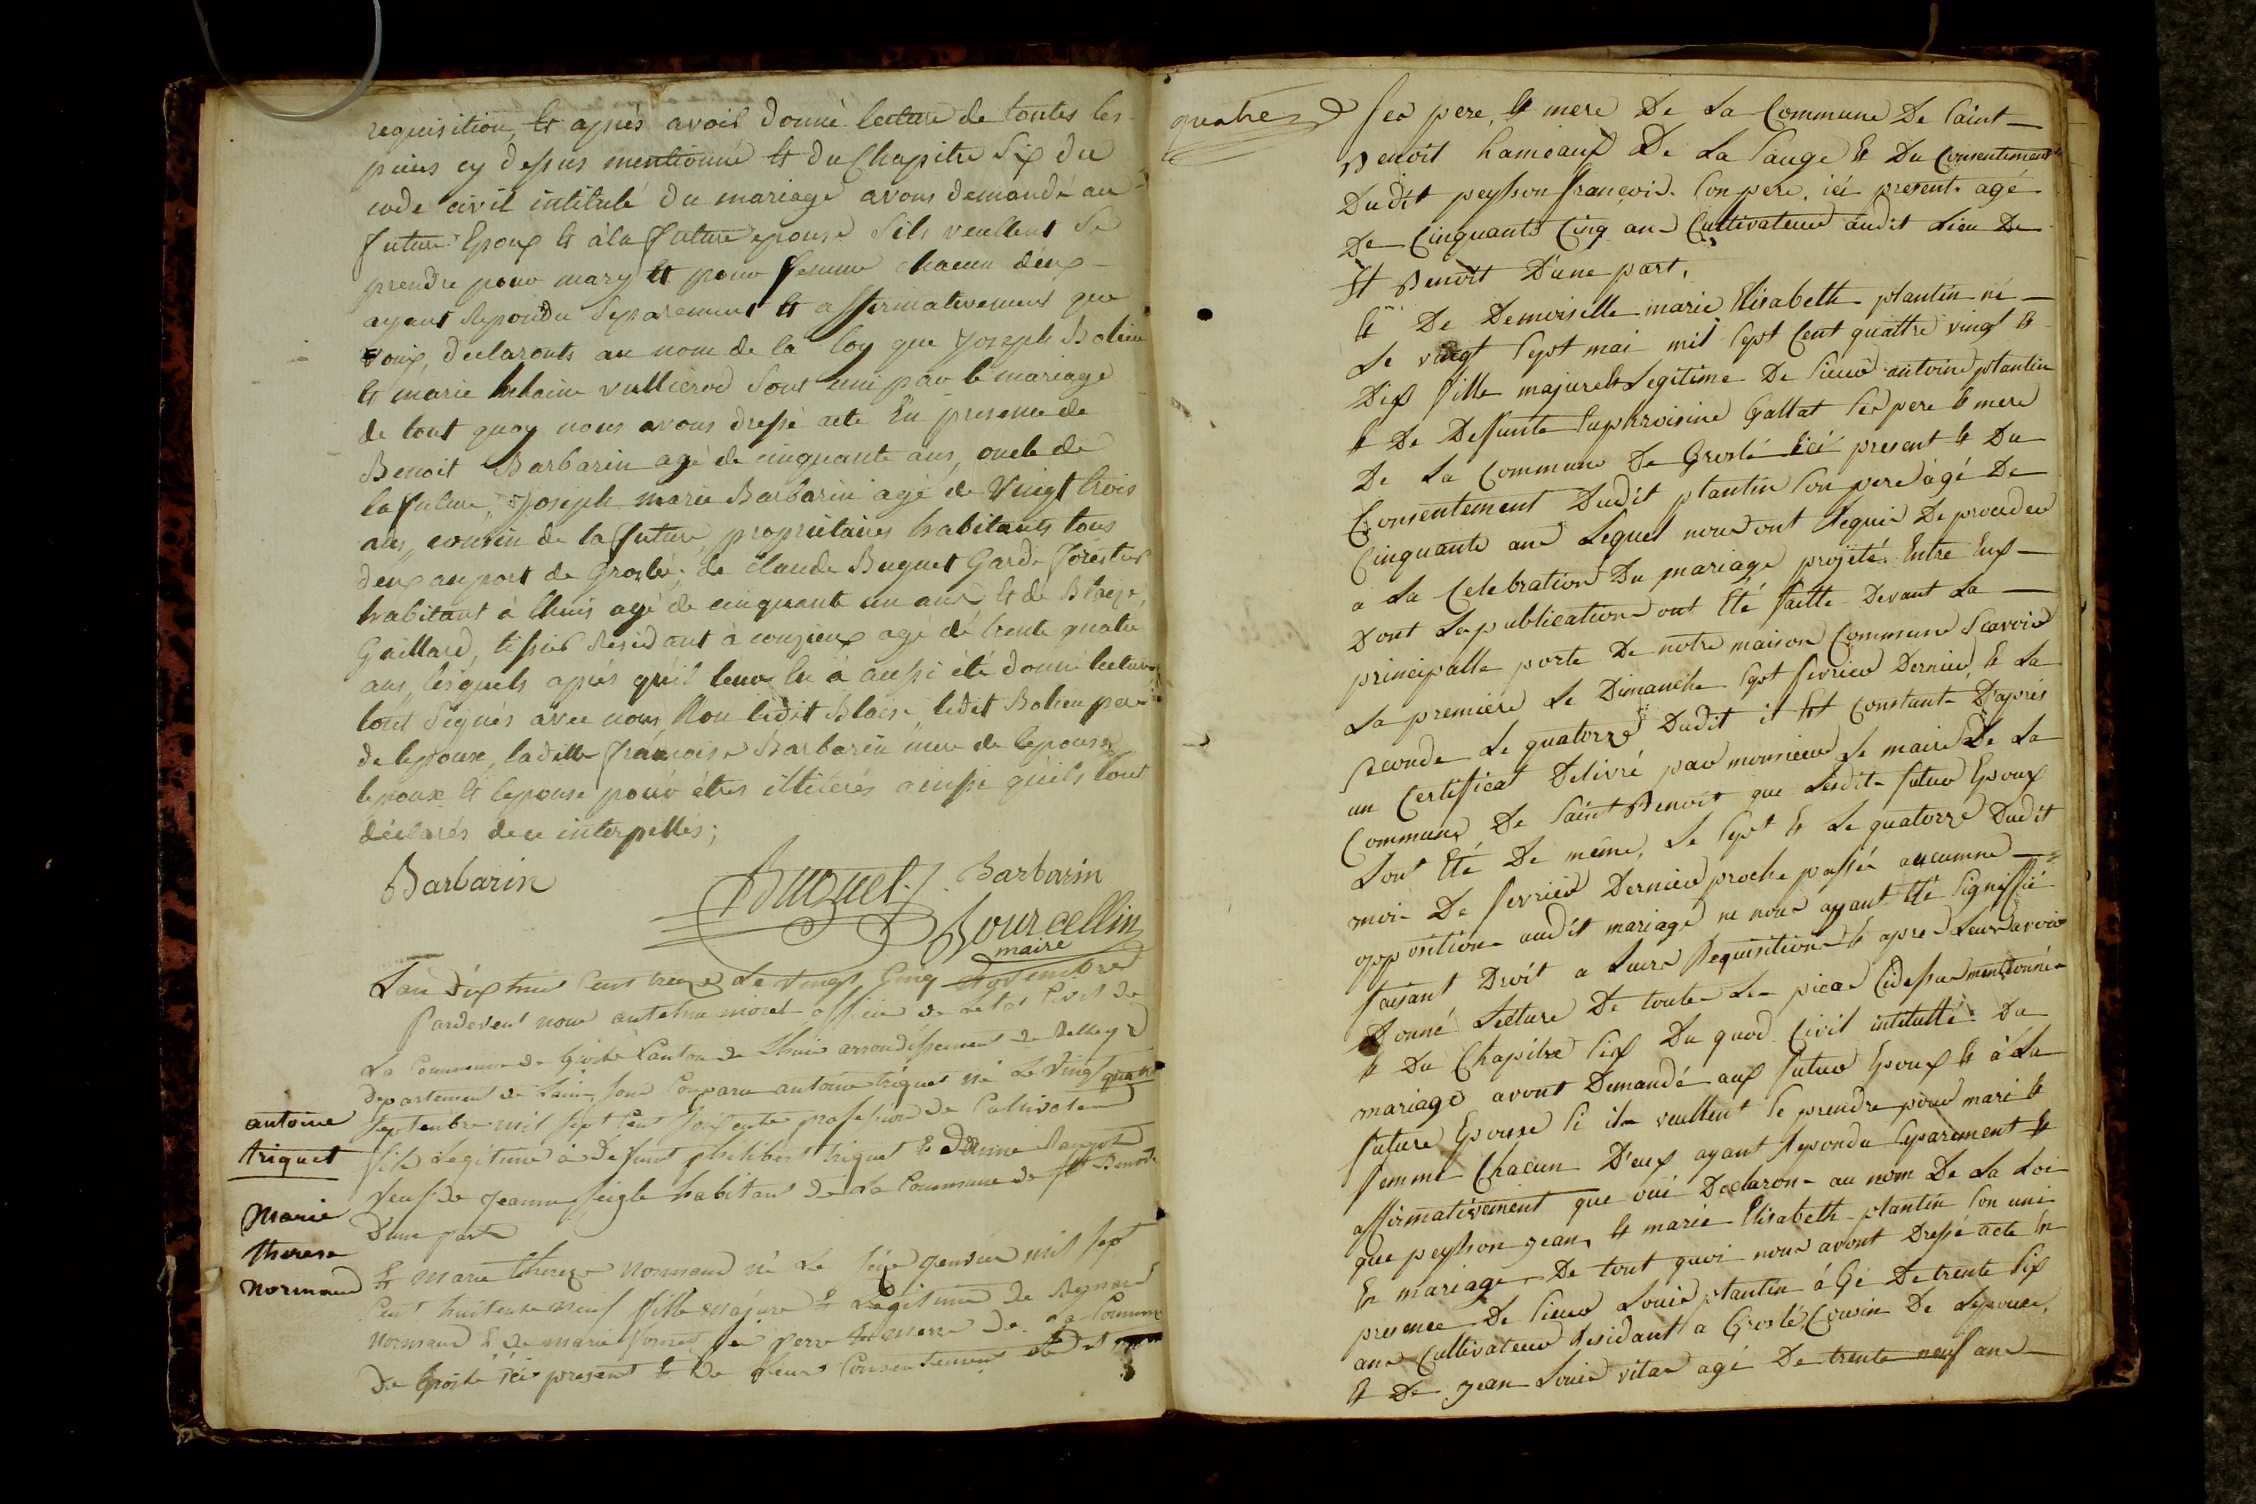 requisition, et aprés avoir donné lecture de toutes les
pieces cy dessus mentionné et du Chapitre Six du
code civil intitulé du mariage avons demandé au
future Epoux et à la future epouse sils veullent se
prendre pour mary et pour femme chacun d'eux
ayant repondu separement et affirmativement que
oui, declaronts au nom de la loy que Joseph Bolieu
et marie vullierod sont uni par le mariage
de tout quoy nous avons dressé acte En presence de
Benoit Barbarin agé de cinquante ans, oncle de
la future, Joseph marie Barbarin agé de Vingt trois
ans, cousin de la future, proprietaires habitants tous
deux au port de Groslée, de Claude Buquet Garde forestier
habitant à Lhuis agé de cinquante un ans, et de Blaize
Gaillard, tissier Residant à conzieux agé de trente quatre
ans, lesquels aprés qu'il leur en à aussi été donné lecture
sont Signés avec nous Non ledit Blaise, ledit Bolieu pere
de lepoux, ladelle françoise Barbarin mere de lepouse
lepoux et lepouse pour étres illiterés ainssi quils l'ont
déclarés de ce interpellés;
Barbarin
Buquet
Barbarin
Bourcellin
maire
L'an dix huit Cent treize Le vingt Cinq Novembre
Pardevant nous anthelme morel officier de Létat Civil de
La Commune de Groslé Canton de Lhuis arrondissement de Belley
departement de Lain, sont Comparu antoine triquet né Le vingt quatre
Septembre mil sept Cent soixante profession de Cultivateur
fils Legitime à defunt philibert triquet et
veuf de Jeanne feigle habitant de La Commune de St Benoit
D'une part
Et marie therese normand né Le seize janvier mil sept
Cent huitente neuf fille majure et Legitime de
normand et de marie ses pere et mere de la Commune
de Groslé ici present et de leurs Consentement
antoine
triquet
Marie
therese
normand
quatre
ses pere, et mere De La Commune De Saint
Benoit hameaux De La Sauge et Du Consentement
Dudit peysson françois son pere, ici present agé
De Cinquante Cinq ans Cultivateur audit Lieu De
St Benoit D'une part,
et De Demoiselle marie Elisabeth plantin né
Le vingt sept mai mil sept Cent quattre vingt et
Dix fille majure et Legitime De sieur antoine plantin
et De Defunte Euphroisine Gallat ses pere et mere
De La Commune De Groslé ici present et Du
Consentement Dudit plantin son pere agé De
Cinquante ans Lequel nous ont Requis De proceder
a La Celebration Du mariage projeté Entre Eux
Dont Les publications ont Eté faitte Devant La
principalle porte De notre maison Commune Scavoir
La premiere Le Dimanche sept fevrier Dernier et La
Seconde Le quatorze Dudit il Est Constant D'aprés
un Certificat Delivré par monsieur Le maire De La
Commune De Saint Benoit que Lesdits futur Epoux
Sont Eté De même, Le sept et Le quatorze Dudit
mois De fevrier Dernier proche passée aucunne
opposition audit mariage ne nous ayant Eté signiffié
faisant Droit a Leurs Requisition et apres Leurs avoir
Donné Lecture De toute Les pieces Cidessus mentionnés
et Du Chapitre six Du quod Civil intitullé Du
mariage avont Demandé aux futur Epoux et à La
future Epouse si ils veullent se prendre pour mari et
femme Chacun D'eux ayant Repondu separement et
affirmativement que oui Declarons au nom De La Loi
que peysson jean, et marie Elisabeth plantin son uni
En mariage De tout quoi nous avont Dressé acte En
presence De sieur Louis plantin âgé De trente six
ans Cultivateur Residant a Groslé, Cousin De Lepouse,
et De jean Louis vitas agé De trente neuf ans